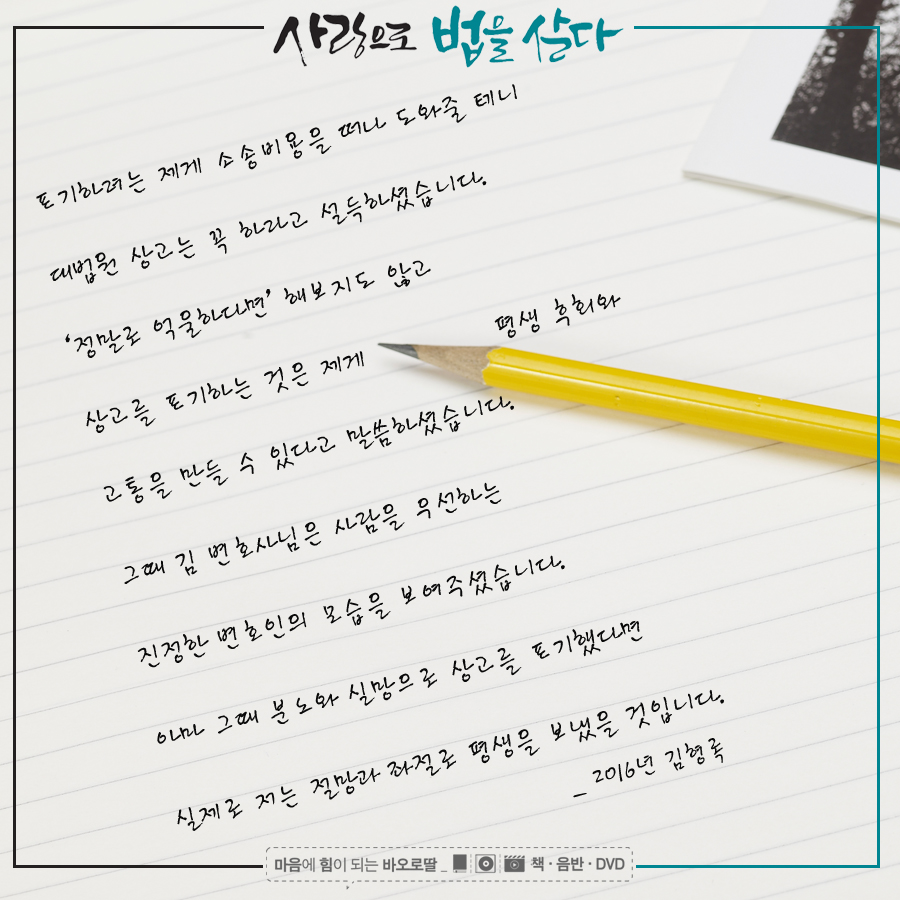 사랑으로 법을 살다
포기하려는 제게 소송비용을 떠나 도와줄 테니
대법원 상고는 꼭 하라고 설득하셨습니다.
'정말로 억울하다면' 해보지도 않고
상고를 포기하는 것은 제게 평생 후회와
고통을 만들 수 있다고 말씀하셨습니다.
그때 김 변호사님은 사람을 우선하는
진정한 변호인의 모습을 보여주셨습니다.
아마 그때 분노와 실망으로 상고를 포기했다면
실제로 저는 절망과 좌절로 평생을 보냈을 것입니다.
_ 2016년 김형록
마음에 힘이 되는 바오로딸 _ 책 · 음반 · DVD